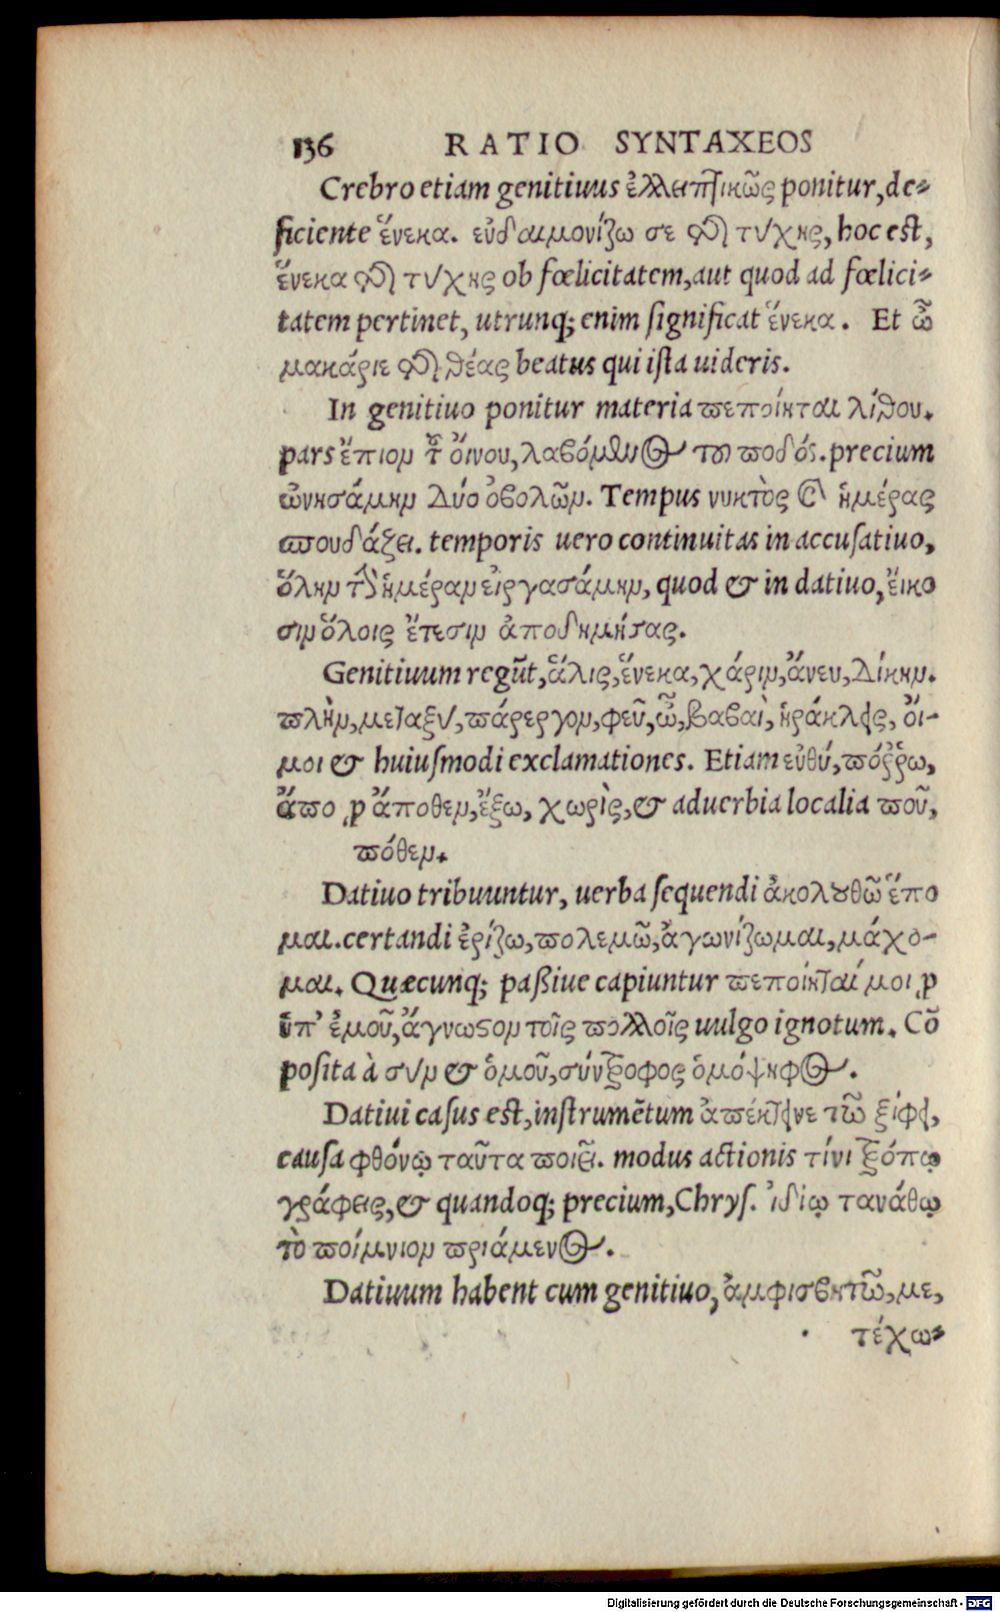 136 RATIO SYNTAXEOS
Crebro etiam genitiuus ἐλλειπτικῶς ponitur, de-
ficiente ἕνεκα. εὐδαιμονίζω σε τῆς τύχης, hoc est,
ἕνεκα τῆς τύχης ob fœlicitatem, aut quod ad fœlici-
tatem pertinet, utrunq; enim significat ἕνεκα. Et ὦ
μακάριε τῆς θέας beatus qui ista uideris.
In genitiuo ponitur materia πεποίηται λίθου.
pars ἔπιον τ͂ οἴνου, λαβόμενος τοῦ ποδός. precium
ὠνησάμην δύο ὀβολῶν. Tempus νυκτὸς καὶ ἡμέρας
σπουδάζει. temporis uero continuitas in accusatiuo,
ὅλην τὴν ἡμέραν εἰργασάμην, quod & in datiuo, ἔικο
σιν ὅλοις ἔτεσιν ἀποδημήσας.
Genitiuum regũt, ἅλις, ἕνεκα, χάριν, ἄνευ, δίκην.
πλὴν, μεταξὺ, πάρεργον, φεῦ, ὦ, βαβαὶ, ἡράκλεις, ὄι-
μοι & huiusmodi exclamationes. Etiam εὐθύ, πόῤῥω,
ἄπο ρ ἄποθεν, ἔξω, χωρὶς, & aduerbia localia ποῦ,
πόθεν.
Datiuo tribuuntur, uerba sequendi ἀκολουθῶ ἕπο
μαι. certandi ἐρίζω, πολεμῶ, ἀγωνίζωμαι, μάχο-
μαι. Quæcunq; paßiue capiuntur πεποίηταί μοι ρ
ὑπ' ἐμοῦ, ἄγνωστον τοῖς πολλοῖς uulgo ignotum. Cõ
posita à σὺν & ὁμοῦ, σύντροφος ὁμόψηφος.
Datiui casus est, instrumẽtum ἀπέκτεινε τῶ ξίφει,
causa φθόνῳ ταῦτα ποιεῖ. modus actionis τίνι τρόπῳ
γράφεις, & quandoq; precium, Chrys. ἰδίῳ τανάθῳ
τὸ ποίμνιον πριάμενος.
Datiuum habent cum genitiuo, ἀμφισβητῶ, με,
τέχω-
Digitalisierung gefördert durch die Deutsche Forschungsgemeinschaft - DFG